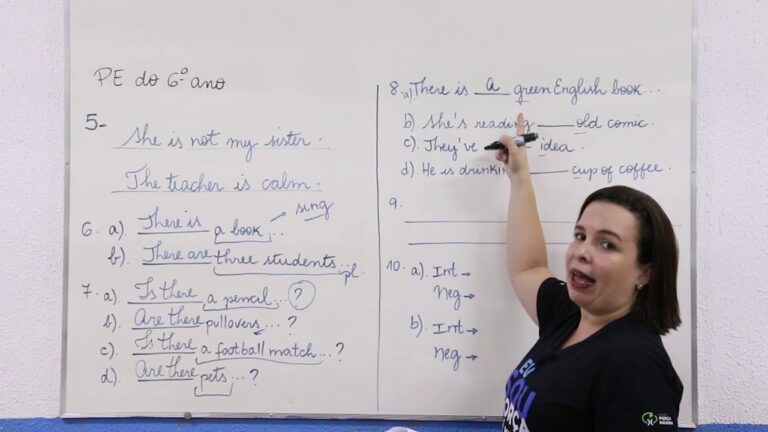 PE do 6º ano
5-
She is not my sister.
The teacher is calm.
sing
6. a). There is a book...
b). There are three students... pl.
7. a) Is there a pencil...?
b). Are there pullovers...?
c). Is there a football match...?
d). Are there pets...?
8. a) There is a green English book...
b) She's reading ____ old comic.
c). They've idea.
d). He is drinkin ____ cup of coffee.
9.
10. a). Int →
Neg →
b). Int →
Neg →
EU
SOU
FORÇA